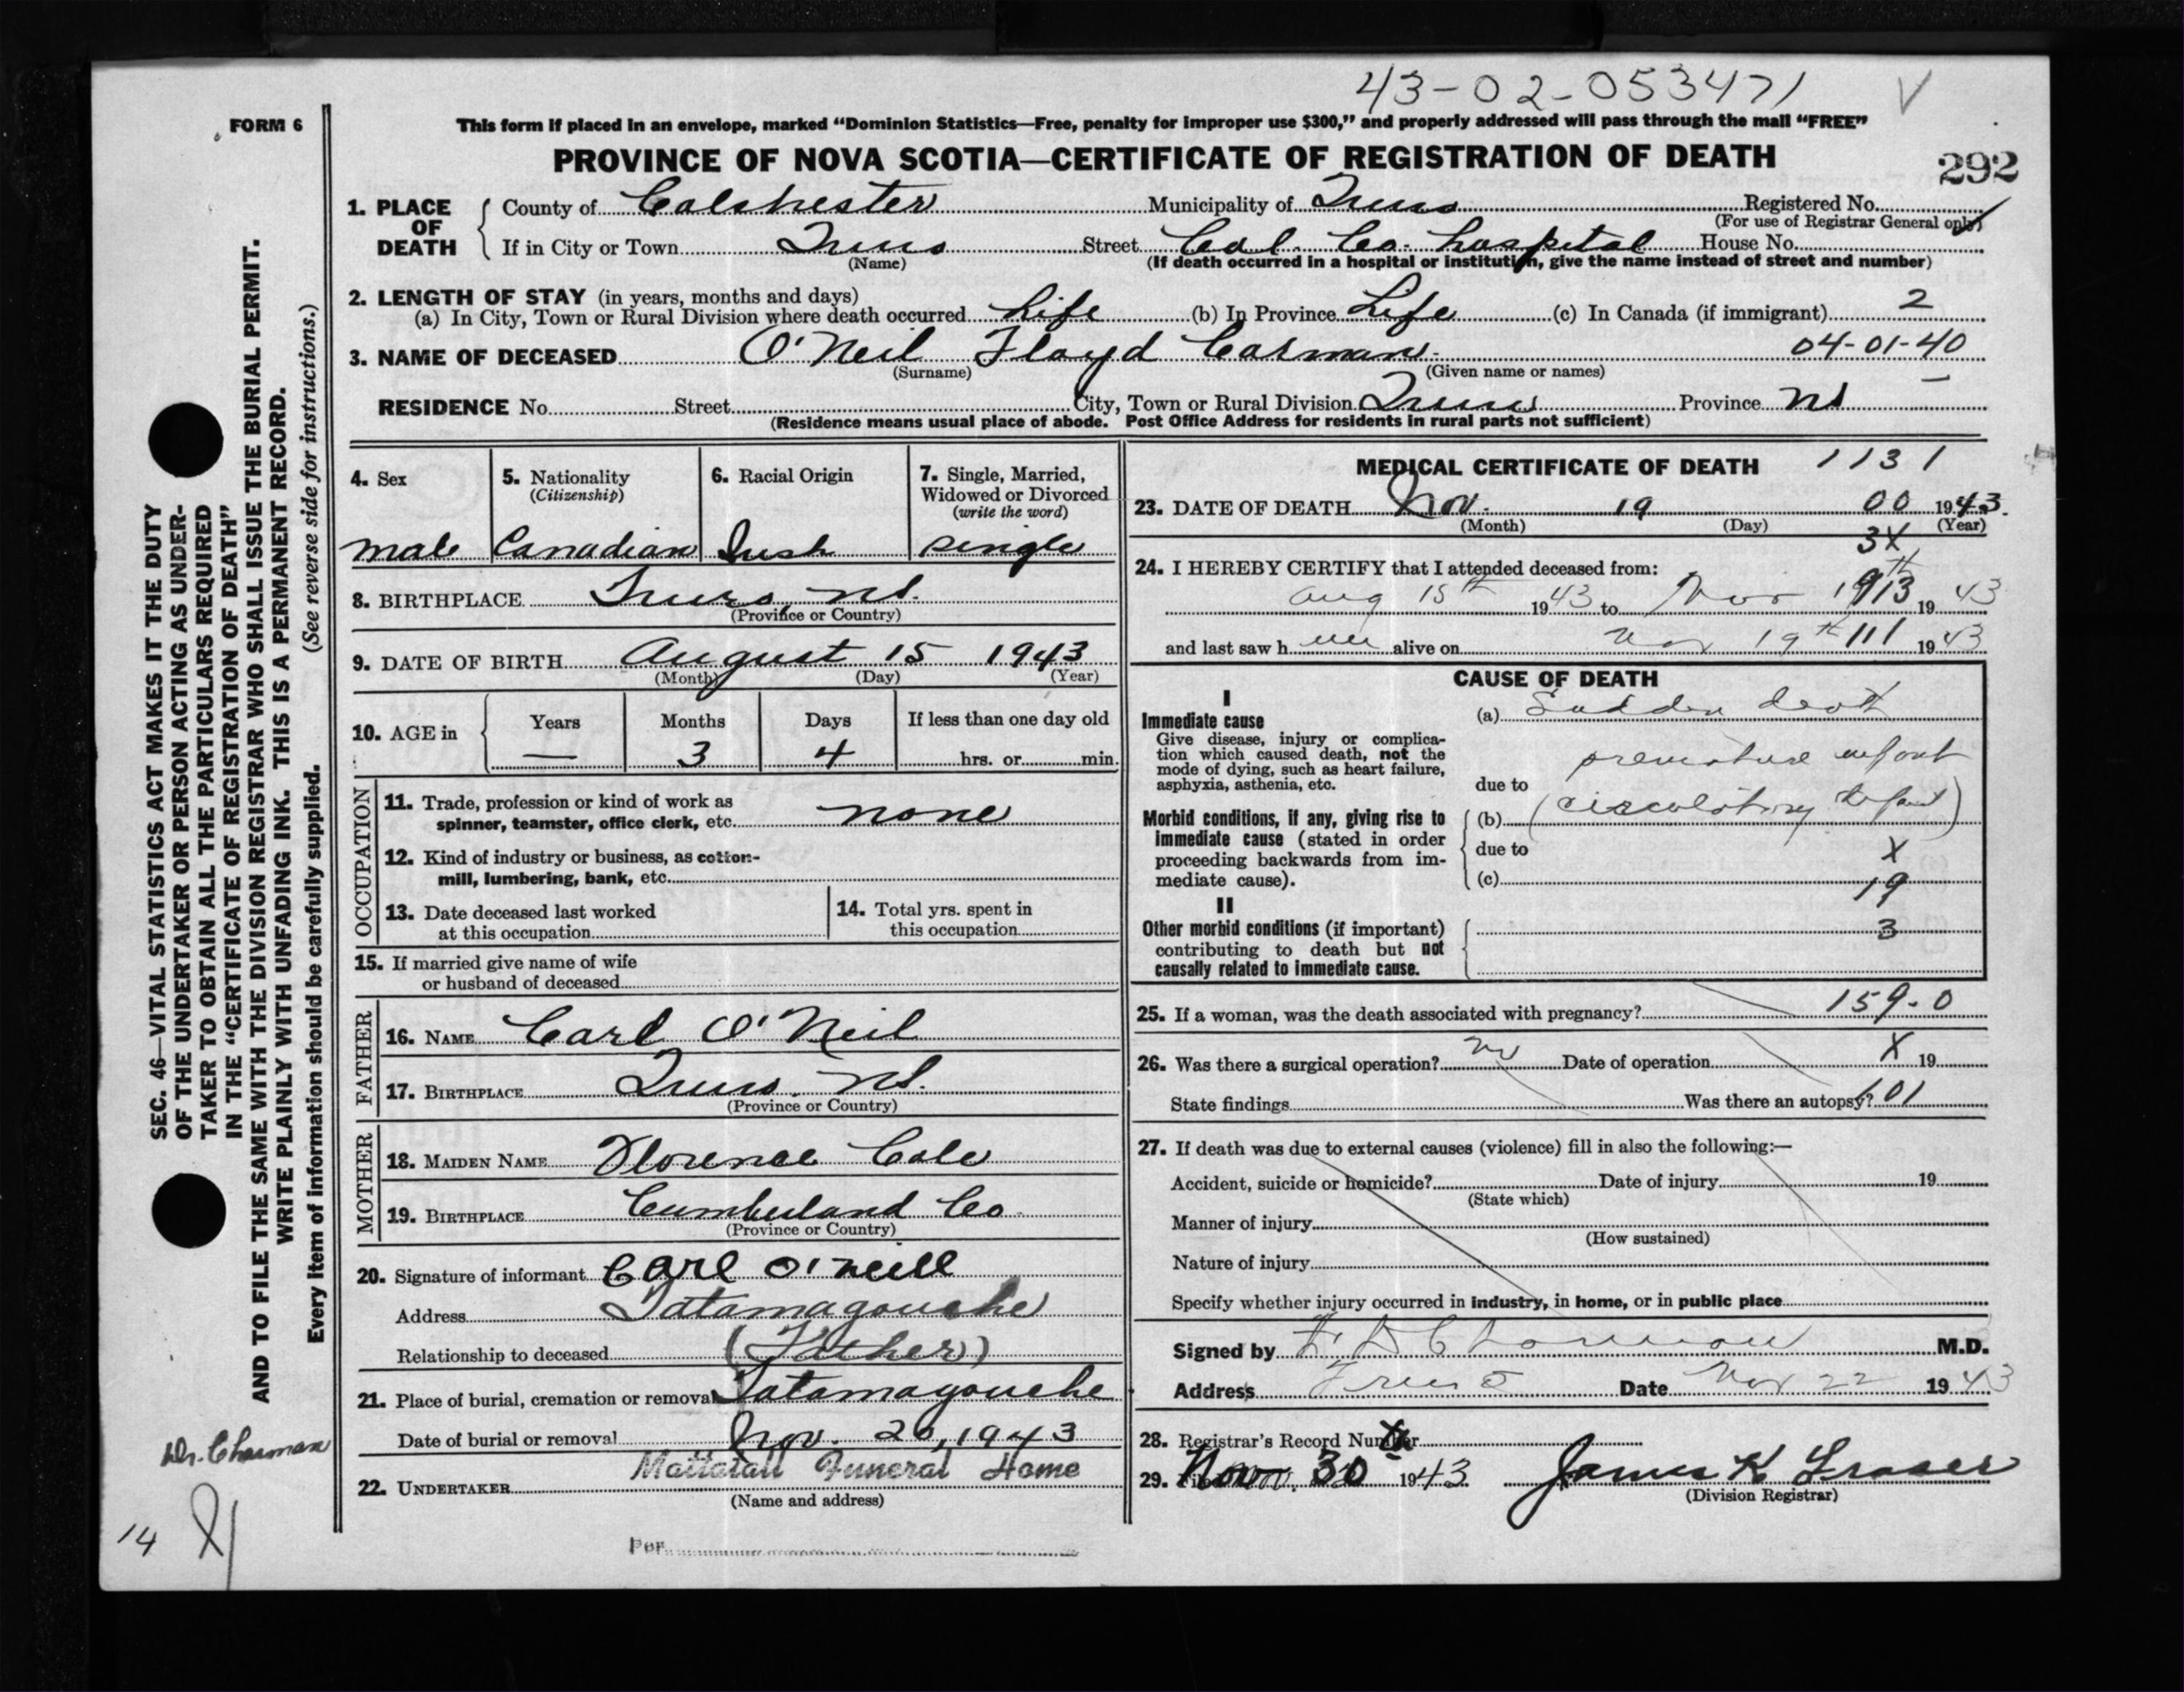 43-02-053471 V
FORM 6
This form if placed in an envelope, marked "Dominion Statistics—Free, penalty for improper use $300," and properly addressed will pass through the mail "FREE"
PROVINCE OF NOVA SCOTIA—CERTIFICATE OF REGISTRATION OF DEATH
292
1. PLACE OF DEATH { County of Colchester Municipality of Truro Registered No.
(For use of Registrar General only)
If in City or Town Truro Street Col. Co. hospital House No.
(Name) (If death occurred in a hospital or institution, give the name instead of street and number)
2. LENGTH OF STAY (in years, months and days)
(a) In City, Town or Rural Division where death occurred Life (b) In Province Life (c) In Canada (if immigrant) 2
3. NAME OF DECEASED O'Neil Floyd Carman 04-01-40
(Surname) (Given name or names)
RESIDENCE No. Street City, Town or Rural Division Truro Province NS
(Residence means usual place of abode. Post Office Address for residents in rural parts not sufficient)
4. Sex
male
5. Nationality
(Citizenship)
Canadian
6. Racial Origin
Irish
7. Single, Married,
Widowed or Divorced
(write the word)
single
8. BIRTHPLACE Truro, NS.
(Province or Country)
9. DATE OF BIRTH August 15 1943
(Month) (Day) (Year)
10. AGE in { Years Months Days If less than one day old
— 3 4 hrs. or min.
OCCUPATION
11. Trade, profession or kind of work as
spinner, teamster, office clerk, etc. none
12. Kind of industry or business, as cotton-
mill, lumbering, bank, etc.
13. Date deceased last worked
at this occupation
14. Total yrs. spent in
this occupation
15. If married give name of wife
or husband of deceased
FATHER
16. NAME Carl O'Neil
17. BIRTHPLACE Truro, NS.
(Province or Country)
MOTHER
18. MAIDEN NAME Florence Cole
19. BIRTHPLACE Cumberland Co
(Province or Country)
20. Signature of informant Carl O'Neill
Address Tatamagouche
Relationship to deceased (Father)
21. Place of burial, cremation or removal Tatamagouche
Date of burial or removal Nov. 20, 1943
22. UNDERTAKER Mattatall Funeral Home
(Name and address)
Per
MEDICAL CERTIFICATE OF DEATH 1131
23. DATE OF DEATH Nov. 19 00 1943.
(Month) (Day) (Year)
3X
24. I HEREBY CERTIFY that I attended deceased from:
Aug 15th 1943 to Nov 19th 13 1943
and last saw h im alive on Nov 19th 111 1943
CAUSE OF DEATH
I
Immediate cause
Give disease, injury or complica-
tion which caused death, not the
mode of dying, such as heart failure,
asphyxia, asthenia, etc.
(a) Sudden death
premature infant
due to
Morbid conditions, if any, giving rise to
immediate cause (stated in order
proceeding backwards from im-
mediate cause).
(b) (circulatory
due to X
(c) 19
II
Other morbid conditions (if important)
contributing to death but not
causally related to immediate cause.
3
25. If a woman, was the death associated with pregnancy? 159-0
26. Was there a surgical operation? no Date of operation X 19
State findings Was there an autopsy? 601
27. If death was due to external causes (violence) fill in also the following:—
Accident, suicide or homicide? Date of injury 19
(State which)
Manner of injury
(How sustained)
Nature of injury
Specify whether injury occurred in industry, in home, or in public place
Signed by Charman M.D.
Address Truro Date Nov 22 1943
28. Registrar's Record Number
29. Nov. 30th 1943 James K Fraser
(Division Registrar)
SEC. 46—VITAL STATISTICS ACT MAKES IT THE DUTY
OF THE UNDERTAKER OR PERSON ACTING AS UNDER-
TAKER TO OBTAIN ALL THE PARTICULARS REQUIRED
IN THE "CERTIFICATE OF REGISTRATION OF DEATH"
AND TO FILE THE SAME WITH THE DIVISION REGISTRAR WHO SHALL ISSUE THE BURIAL PERMIT.
WRITE PLAINLY WITH UNFADING INK. THIS IS A PERMANENT RECORD.
Every item of information should be carefully supplied. (See reverse side for instructions.)
Dr. Charman
14